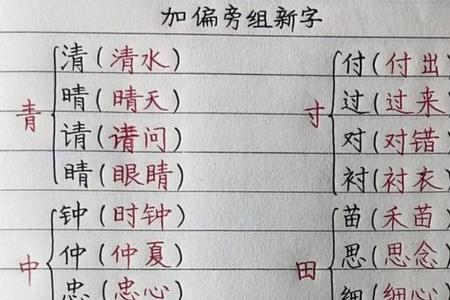 加偏旁组新字
青
清(清水)
晴(晴天)
请(请问)
睛(眼睛)
寸
付(付出)
过(过来)
对(对错)
衬(衬衣)
中
钟(时钟)
仲(仲夏)
忠(忠心)
田
苗(禾苗)
思(思念)
细(细心)